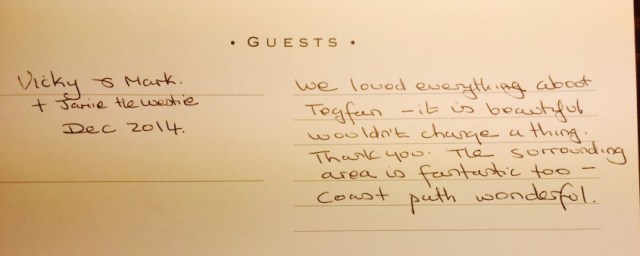 • GUESTS •
Vicky & Mark.
+ Jamie the westie
Dec 2014.
we loved everything about
Tegfan - it is beautiful
wouldn't change a thing.
Thank you. The surrounding
area is fantastic too -
Coast path wonderful.